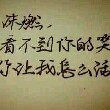 沐燃，
看不到你的笑
你让我怎么活